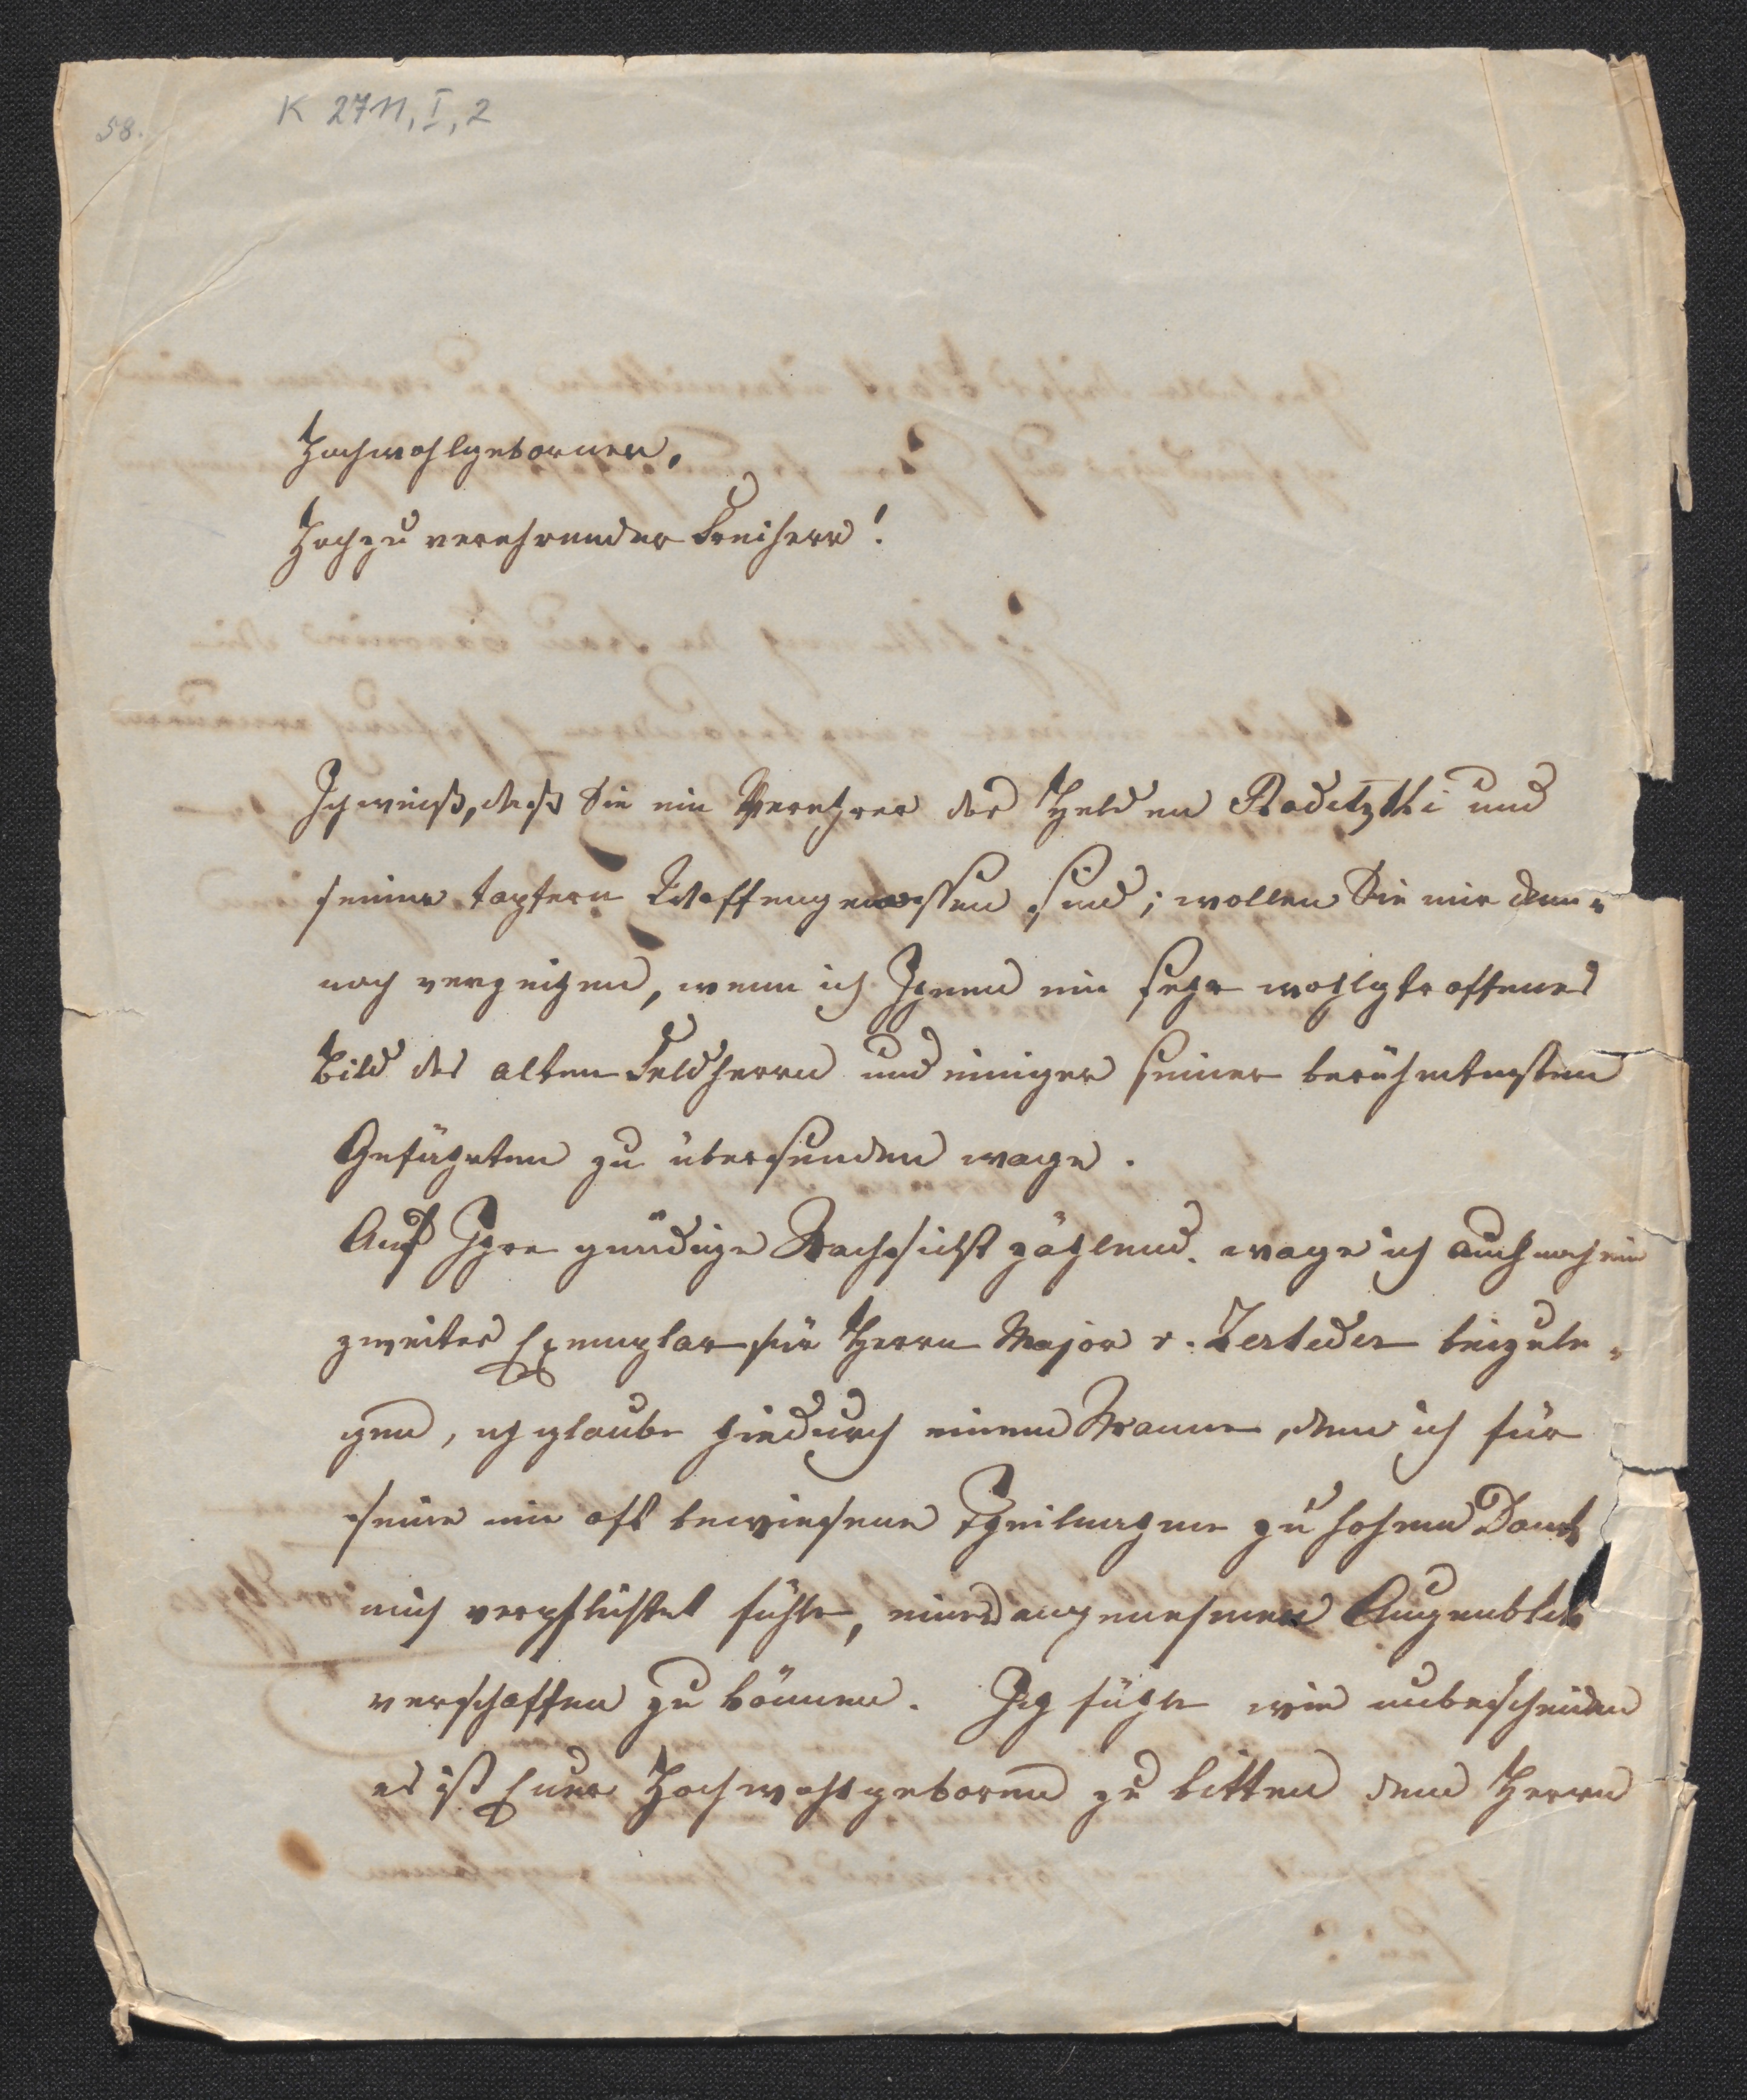 58.
K 2711, I, 2
Hochwohlgeborner,
Hochzu verehrender Freiherr!
Ich weiß, daß Sie ein Verehrer des Helden Radetzki und
seiner tapfern Waffengenossen sind; wollen Sie mir dem=
nach verzeihen, wenn ich Ihnen ein sehr wohlgetroffenes
Bild des alten Feldherrn und einiger seiner berühmtesten
Gefährten zu übersenden wage.
Auf Ihre gnädige Nachsicht zählend. wage ich auch noch ein
zweites Exemplar für Herrn Major v. Zerleder beizule=
gen, ich glaube hiedurch einem Manne, dem ich für
seine mir oft bewiesene Theilnahme zu hohem Dank
mich verpflichtet fühle, einen angenehmen Augenblick
verschaffen zu können. Ich fühle wie unbescheiden
es ist Euer Hochwohlgeboren zu bitten dem Herrn